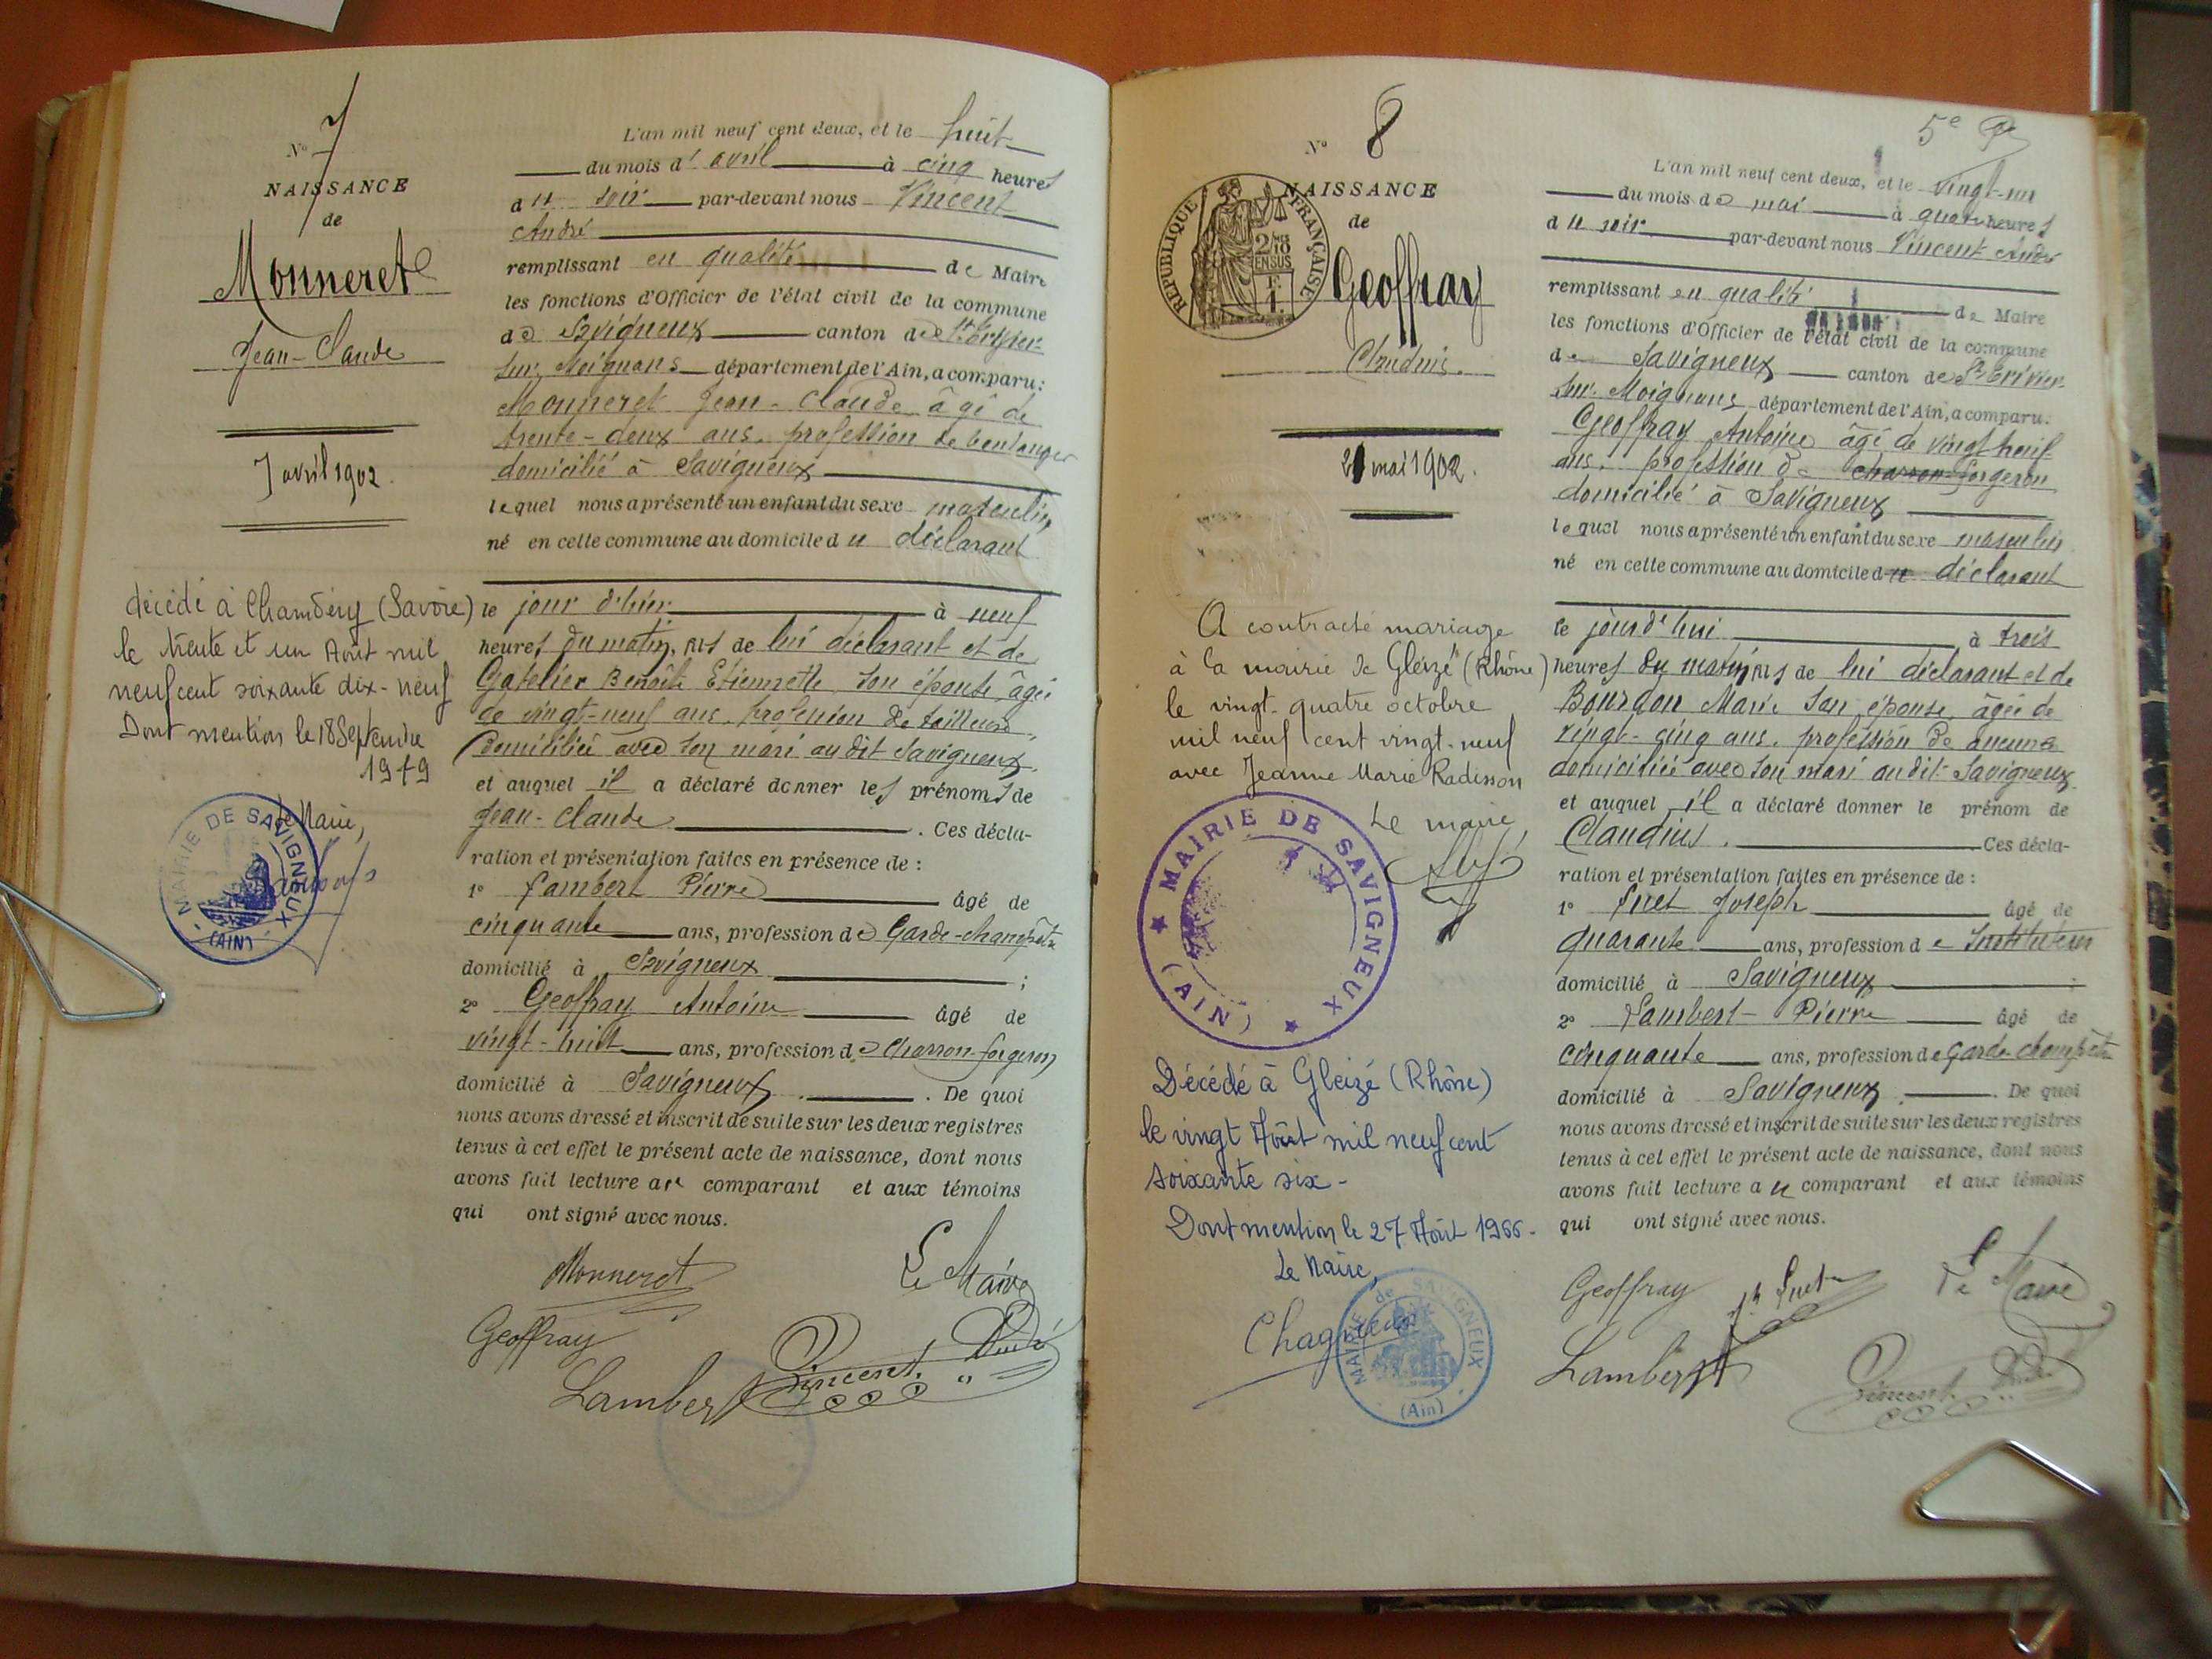 N° 7
NAISSANCE
de
Monneret
Jean-Claude
7 avril 1902.
décédé à Chambéry (Savoie)
le trente et un Août mil
neuf cent soixante dix-neuf
Dont mention le 18 Septembre
1979
Le Maire,
MAIRIE DE SAVIGNEUX
(AIN)
L'an mil neuf cent deux, et le huit
du mois d'avril à cinq heures
du soir par-devant nous Vincent
André
remplissant en qualité de Maire
les fonctions d'Officier de l'état civil de la commune
de Savigneux canton de St Trivier
sur Moignans département de l'Ain, a comparu:
Monneret Jean-Claude âgé de
trente-deux ans, profession de boulanger
domicilié à Savigneux
lequel nous a présenté un enfant du sexe masculin
né en cette commune au domicile du déclarant
le jour d'hier à neuf
heures du matin, fils de lui déclarant et de
Gatelier Benoîte Etiennette, son épouse, âgée
de vingt-neuf ans, profession de tailleuse,
domiciliée avec son mari au dit Savigneux.
et auquel il a déclaré donner les prénoms de
Jean-Claude . Ces décla-
ration et présentation faites en présence de :
1° Lambert Pierre âgé de
cinquante ans, profession de Garde-champêtre
domicilié à Savigneux ;
2° Geoffray Antoine âgé de
vingt-huit ans, profession de Charron-forgeron
domicilié à Savigneux . De quoi
nous avons dressé et inscrit de suite sur les deux registres
tenus à cet effet le présent acte de naissance, dont nous
avons fait lecture au comparant et aux témoins
qui ont signé avec nous.
Monneret Le Maire
Geoffray Vincent André
Lambert
5e
N° 8
NAISSANCE
de
Geoffray
Claudius.
REPUBLIQUE FRANÇAISE
2/10 EN SUS
21 mai 1902.
A contracté mariage
à la mairie de Gleizé (Rhône)
le vingt-quatre octobre
mil neuf cent vingt-neuf
avec Jeanne Marie Radisson
Le maire,
MAIRIE DE SAVIGNEUX
(AIN)
Décédé à Gleizé (Rhône)
le vingt Août mil neuf cent
soixante six -
Dont mention le 27 Août 1966 -
Le Maire,
MAIRIE de SAVIGNEUX
(Ain)
L'an mil neuf cent deux, et le vingt-un
du mois de mai à quatre heures
du soir par-devant nous Vincent André
remplissant en qualité de Maire
les fonctions d'Officier de l'état civil de la commune
de Savigneux canton de St Trivier
sur Moignans département de l'Ain, a comparu.
Geoffray Antoine âgé de vingt huit
ans, profession de charron-forgeron
domicilié à Savigneux
lequel nous a présenté un enfant du sexe masculin
né en cette commune au domicile du déclarant
le jourd'hui à trois
heures du matin, fils de lui déclarant et de
Bourdon Marie son épouse, âgée de
vingt-cinq ans, profession de aucune
domiciliée avec son mari au dit Savigneux.
et auquel il a déclaré donner le prénom de
Claudius . Ces décla-
ration et présentation faites en présence de :
1° Joseph âgé de
quarante ans, profession de Instituteur
domicilié à Savigneux ;
2° Lambert Pierre âgé de
cinquante ans, profession de Garde-champêtre
domicilié à Savigneux . De quoi
nous avons dressé et inscrit de suite sur les deux registres
tenus à cet effet le présent acte de naissance, dont nous
avons fait lecture au comparant et aux témoins
qui ont signé avec nous.
Geoffray Le Maire
Lambert Vincent André